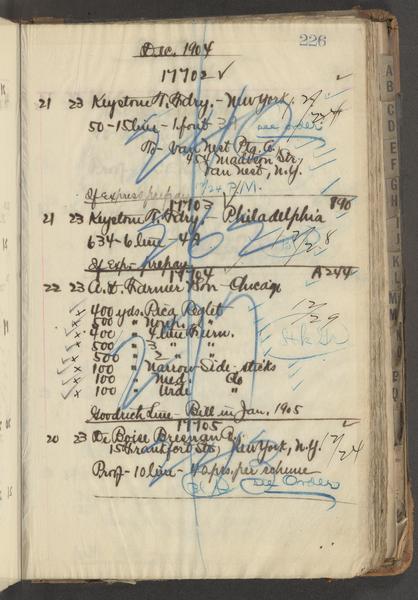 226
Dec. 1904
17702 ✓
21 23 Keystone T. Fdry. - New York. 24
50 - 15 line - 1 font see order
To - Van Nest Ptg. Co.
454 Madison Str,
Van Nest, N.Y.
If express prepay 12/24 P.M.
17703
21 23 Keystone T. Fdry. - Philadelphia 890
634 - 6 line - 4A 12/28
If Exp - prepay
17704 A 244
22 23 A. D. Farmer & Son - Chicago
400 yds. Pica Reglet 12/29
500 " Non. " "
400 " 4 line Furn.
500 " 3 " "
500 " 2 " "
100 " Narrow Side-sticks
100 " Med. do
100 " Wide "
Goodrich Line - Bill in Jan. 1905
17705
20 23 De Boise Breenan Co.
15 Frankfort Str, New York, N.Y. 12/24
Proof - 10 line - 40 pts. per scheme
see Order
A
B
C
D
E
F
G
H
I
J
K
L
M